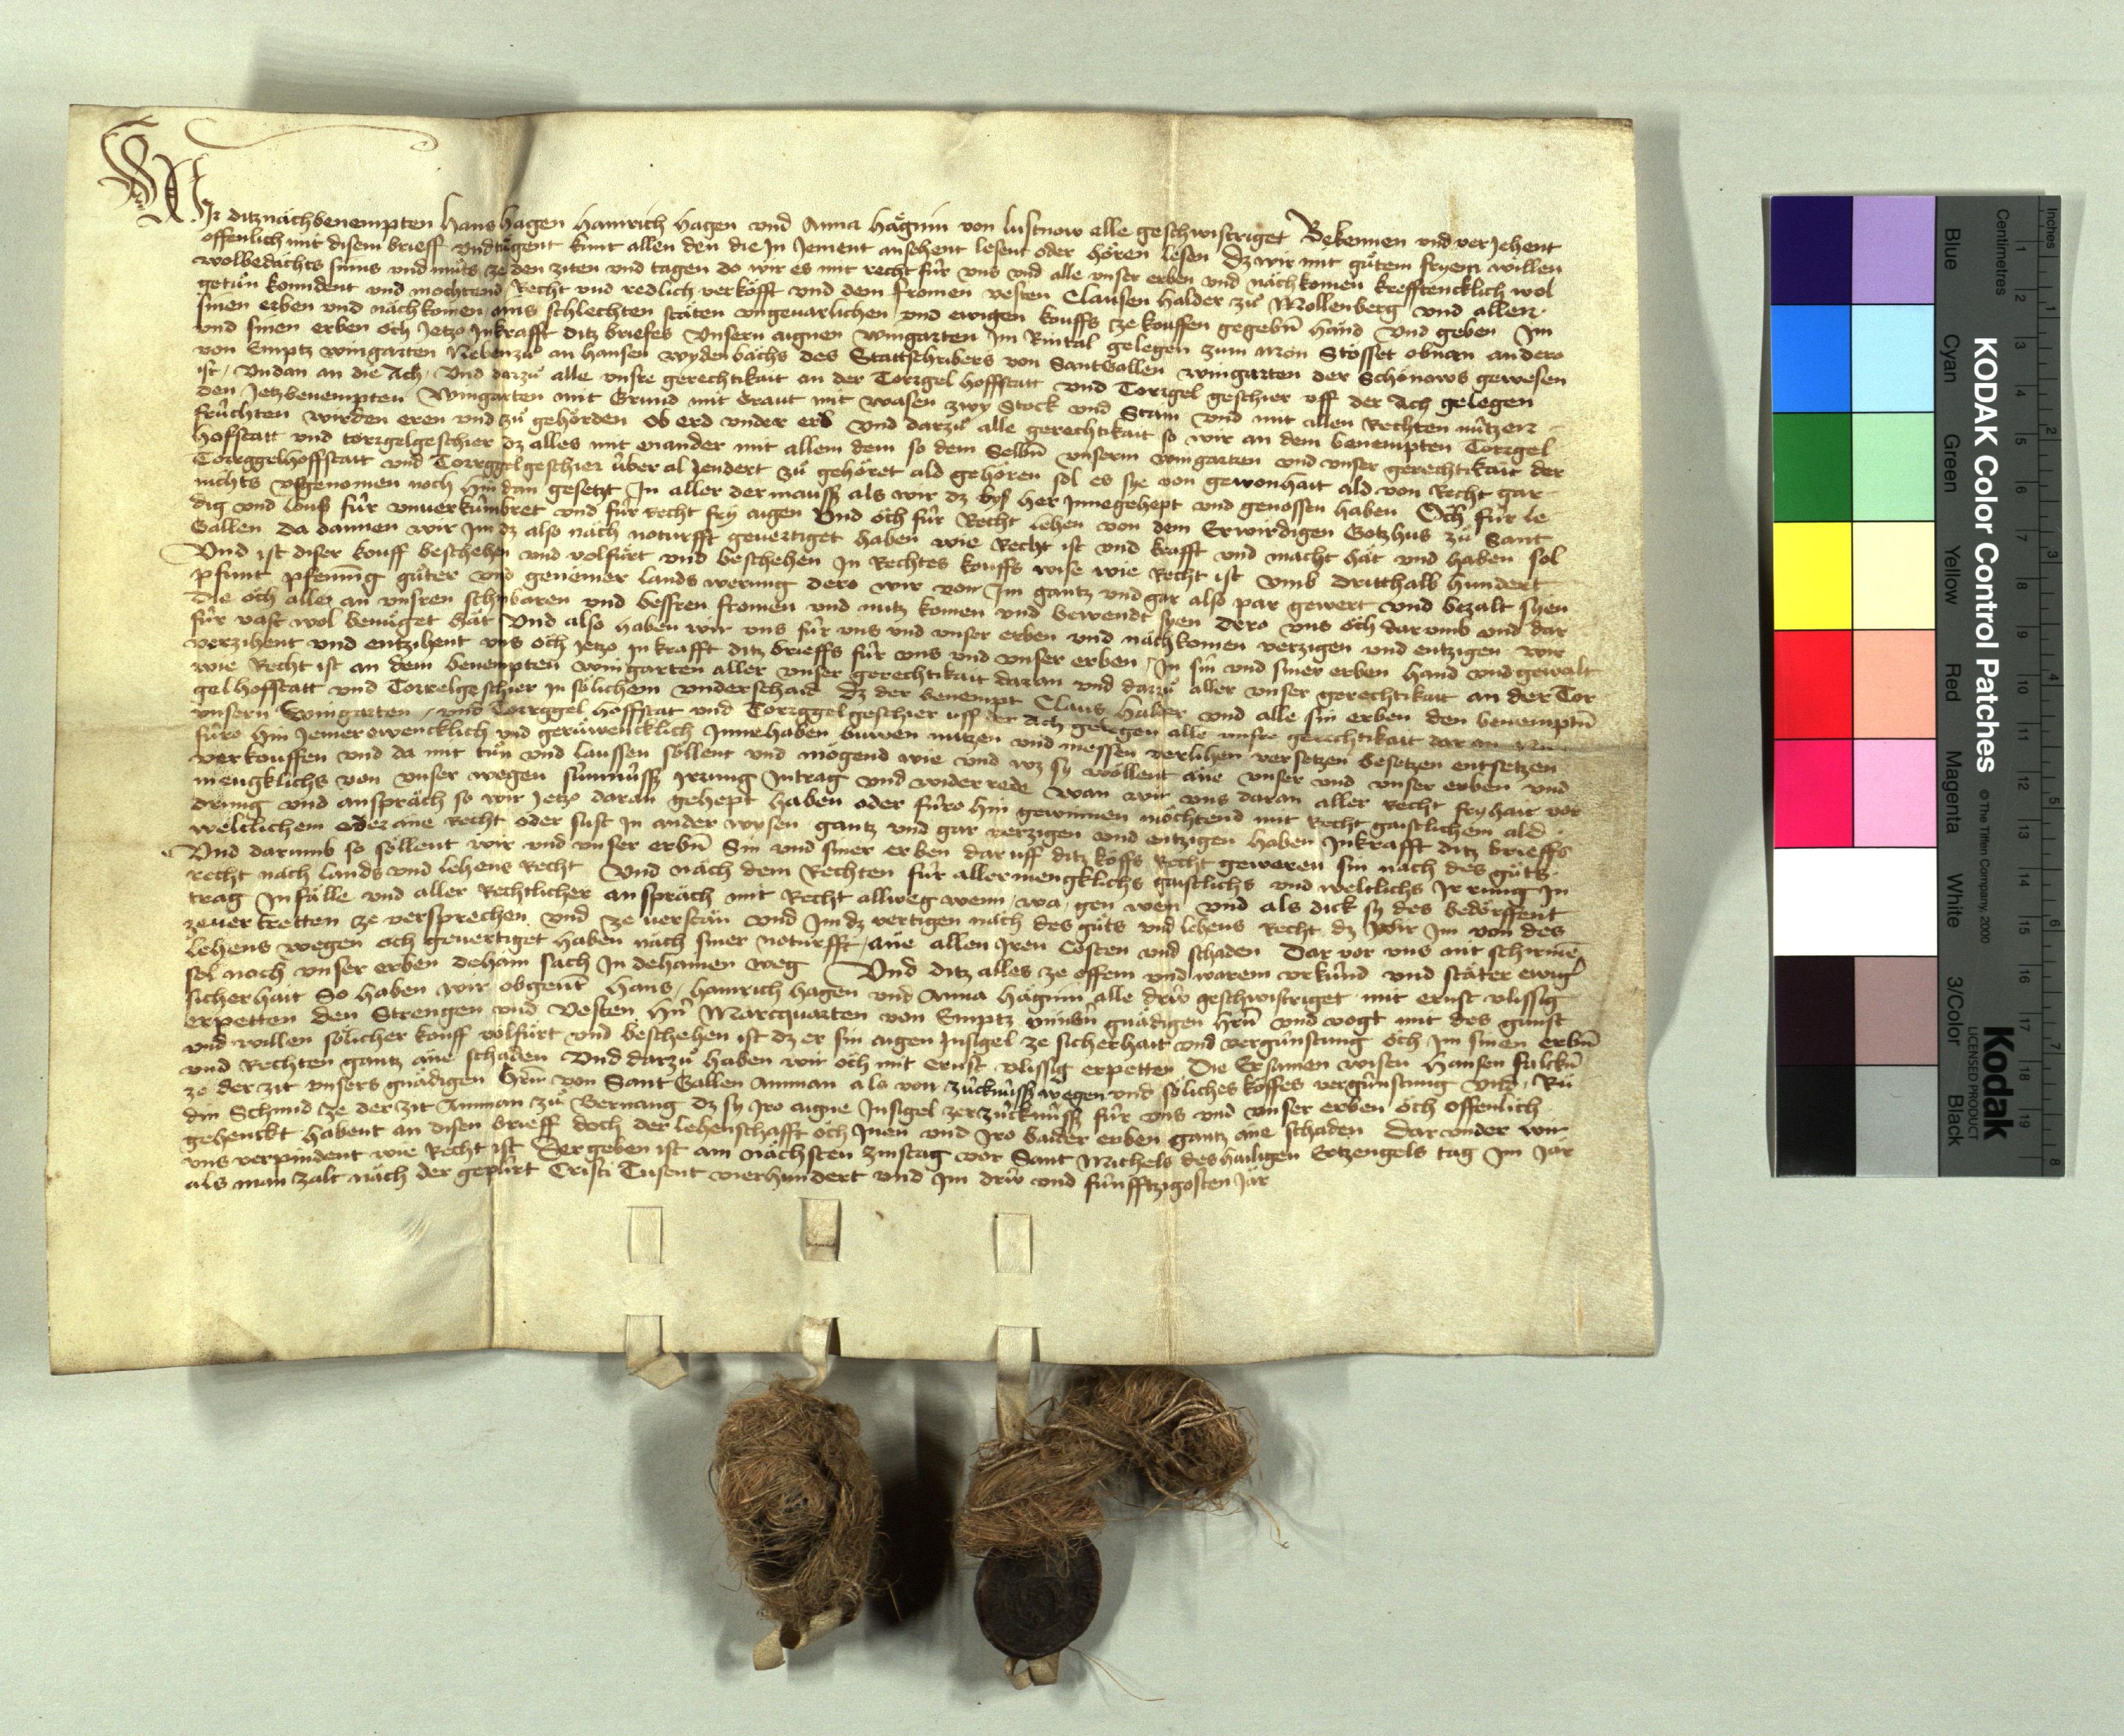 WIr ditz nachbenempten Hans Hagen Hainrich Hagen vnd Anna Hägnin von Lustnow alle geschwistriget Bekennen vnd veriehent
offenlich mit disem brieff vnd tůgent kunt allen den die In Iement ansehent lesent oder hören lesen Dz wir mit gůtem fryem willen
wolbedächts sinns vnd můts ze den ziten vnd tagen do wir es mit recht für vns vnd alle vnser erben vnd nächkomen krefftencklich wol
getůn konndent vnd mochtend Recht vnd redlich verköfft vnd dem fromen vesten Clausen Halder zů Mollenberg vnd allen
sinen erben vnd nächkomen ains schlechten stäten vngeuarlichen vnd ewigen kouffs ze kouffen gegebn̄ händ vnd geben Im
vnd sinen erben och Ietzo In krafft ditz briefes Vnsern aignen wingarten Im Rintal gelegen zum Mon Stosset obnan an dero
von Emptz wingarten Nebenzů an Hansen wydenbächs des Stattschribers von Sant Gallen wingarten der Schönows gewesen
ist / Vndan an die Ach / Vnd darzů alle vnsre gerechtikait an der Torggel hoffstatt vnd Torggel geschier vff der Ach gelegen
den Ietzbenempten Wingarten mit Grund mit Graut mit wasen zwy Stock vnd Stam vnd mit allen Rechten nützen
früchten wirden eren vnd zů gehörden ob erd vnder erd vnd darzů alle gerechtikait so wir an dem benempten Torggel
hofstatt vnd torggelgeschier dz alles mit enander mit allem dem so dem Selbn̄ vnserm wingarten vnd vnser gerechtikait der
Torggelhoffstatt vnd Torggelgeschier über al Iendert zů gehöret ald gehören sol es sye von gewonhait ald von Recht gar
nichts vsgenomen noch hin dan gesetzt In aller der mauss als wir dz bys her Innegehept vnd genossen haben Och für le
dig vnd louss für vnuerkümbret vnd für recht fry aigen Vnd och für Recht lehen von dem Erwirdigen Gotzhus zů Sant
Gallen da dannen wir Im dz also näch noturfft geuertiget haben wie Recht ist vnd krafft vnd macht hät vnd haben sol
Vnd ist diser kouff beschehen vnd volfürt vnd beschehen In Rechtes kouffs wise wie Recht ist vmb dritthalb hundert
pfunt pfenning gůter vnd genämer lands werung dero wir von Im gantz vnd gar also par gewert vnd bezalt syen
die och aller an vnsren schinbaren vnd bessren fromen vnd nutz komen vnd bewendt syen Dero vns och dar vmb vnd dar
für vast wol benüget hät Vnd also haben wir vns für vns vnd vnser erben vnd nächkomen verzigen vnd entzigen wir
verzihent vnd entzihent vns och Ietzo In krafft ditz brieffs für vns vnd vnser erben / In sin vnd siner erben hand vnd gewalt
wie Recht ist an dem benempten wingarten aller vnser gerechtikait daran vnd darzů aller vnser gerechtikait an der Tor
gel hofstatt vnd Torrelgeschier In sölichem vnderschaid Dz der benempt Claus Halder vnd alle sin erben den benemptn̄
vnsern Wingarten / vnd Torrggel hoffstat vnd Torggelgeschier uff der Ach gelegen alle vnsre gerechtikait dar an
füro hin Iemer ewencklich vnd gerüwencklich Innehaben buwen nutzen vnd niessen verlihen versetzen besetzen entsetzen
verkouffen vnd da mit tůn vnd laussen söllent vnd mögend wie vnd wz sy wöllent äne vnser vnd vnser erben vnd
mengklichs von vnser wegen sümnüss Irrung Intrag vnd widerrede wan wir vns daran aller recht fryhait vor
drung vnd anspräch so wir Ietzo daran gehept haben oder füro hin gewinnen möchtend mit Recht gaistlichem ald
weltlichem oder äne Recht oder sust In ander wysen gantz vnd gar verzigen vnd entzigen haben In krafft ditz brieffs
Vnd darumb so söllent wir vnd vnser erbn̄ Sin vnd siner erben dar uff ditz köffs Recht geweren sin näch des gůts
recht näch lands vnd lehens Recht Vnd näch dem Rechten für allermengklichs gaistlichs vnd weltlichs Irrung In
trag Infälle vnd aller Rechtlicher anspräch mit Recht allweg wenn / wa / gen wen vnd als dick sy des bedörffent
zeuertretten ze versprechen vnd ze uerstän vnd Im dz vertigen näch des gůts vnd lehens Recht dz wir Im von des
lehens wegen och geuertiget haben näch siner noturfft / äne allen Iren Costen vnd schaden Dar vor vns nit schirmē
sol noch vnser erben dehain sach In dehainen weg Vnd ditz alles ze offem vnd warem vrkünd vnd stäter ewiger
sicherhait So haben wir obgent̄ Hans / Hainrich Hagen vnd Anna Hägnin alle drü geschwistriget mit ernst vlissig
erpetten den Strengen vnd Vesten Hn̄ Marcquarten von Emptz vnnsn̄ gnädigen Hrn̄ vnd vogt mit des gunst
vnd willen sölicher kouff volfürt vnd beschehen ist dz er sin aigen Insigel ze sicherhait vnd vergünstung och Im sinen erbn̄
vnd Rechten gantz äne schaden Vnd darzů haben wir och mit Ernst vlissig erpetten Die Ersamen wisen Hansen falckn̄
ze der zit vnsers gnädigen Hrn̄ von Sant Gallen Amman als von zücknüss wegen vnd söliches köffes vergünstung Vnd / Rů
din Schmid ze der zit Amman zů Bernang dz sy Iro aigne Insigel zer zücknüss für vns vnd vnser erben och offenlich
gehenckt habent an disen brieff doch der lehenschafft och Inen vnd Iro baider erben gantz äne schaden Dar vnder wir
vns verpindent wie Recht ist Der geben ist am nächsten zinstag vor Sant Michels des hailigen Ertzengels tag Im Jär
als man zalt näch der gepürt Cristi Tusent vierhundert vnd Im drü vnd fünfftzigosten Jär
KODAK Color Control Patches © The Tiffen Company, 2000
Kodak
LICENSED PRODUCT
Blue Cyan Green Yellow Red Magenta White 3/Color Black
Centimetres
1 2 3 4 5 6 7 8 9 10 11 12 13 14 15 16 17 18 19
Inches
1 2 3 4 5 6 7 8